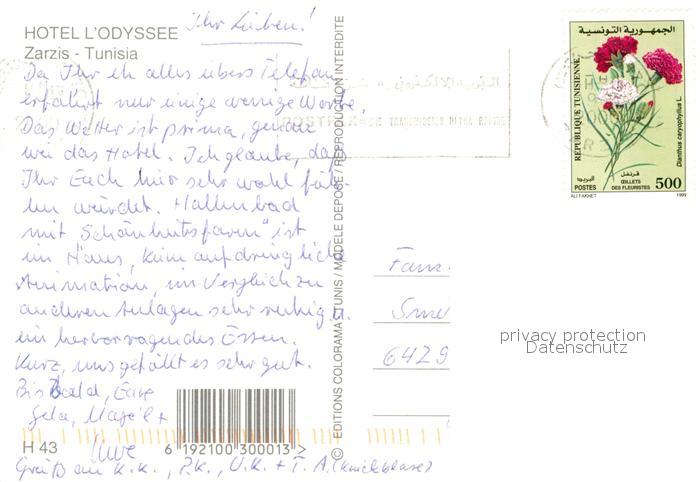 HOTEL L'ODYSSEE
Zarzis - Tunisia
Ihr Lieben!
Da Ihr eh alles übers Telefon
erfahrt nur einige wenige Worte.
Das Wetter ist prima, genau
wie das Hotel. Ich glaube, daß
Ihr Euch hier sehr wohl füh-
len würdet. Hallenbad
mit "Schönheitsfarm" ist
im Haus, keine aufdringliche
Animation, im Vergleich zu
anderen Anlagen sehr ruhig u.
ein hervorragendes Essen.
Kurz, uns gefällt es sehr gut.
Bis bald, Eure
Gela, +
Uwe
Gruß an K.K., P.K., U.K. + T. A.
H 43
6 192100 300013 >
© EDITIONS COLORAMA TUNIS / MODELE DEPOSE / REPRODUCTION INTERDITE
الجمهورية التونسية
REPUBLIQUE TUNISIENNE
Dianthus caryophyllus L.
قرنفل
البريد
ŒILLETS
DES FLEURISTES
POSTES
500
ALI FAKHET
1999
Fam.
6429
privacy protection
Datenschutz